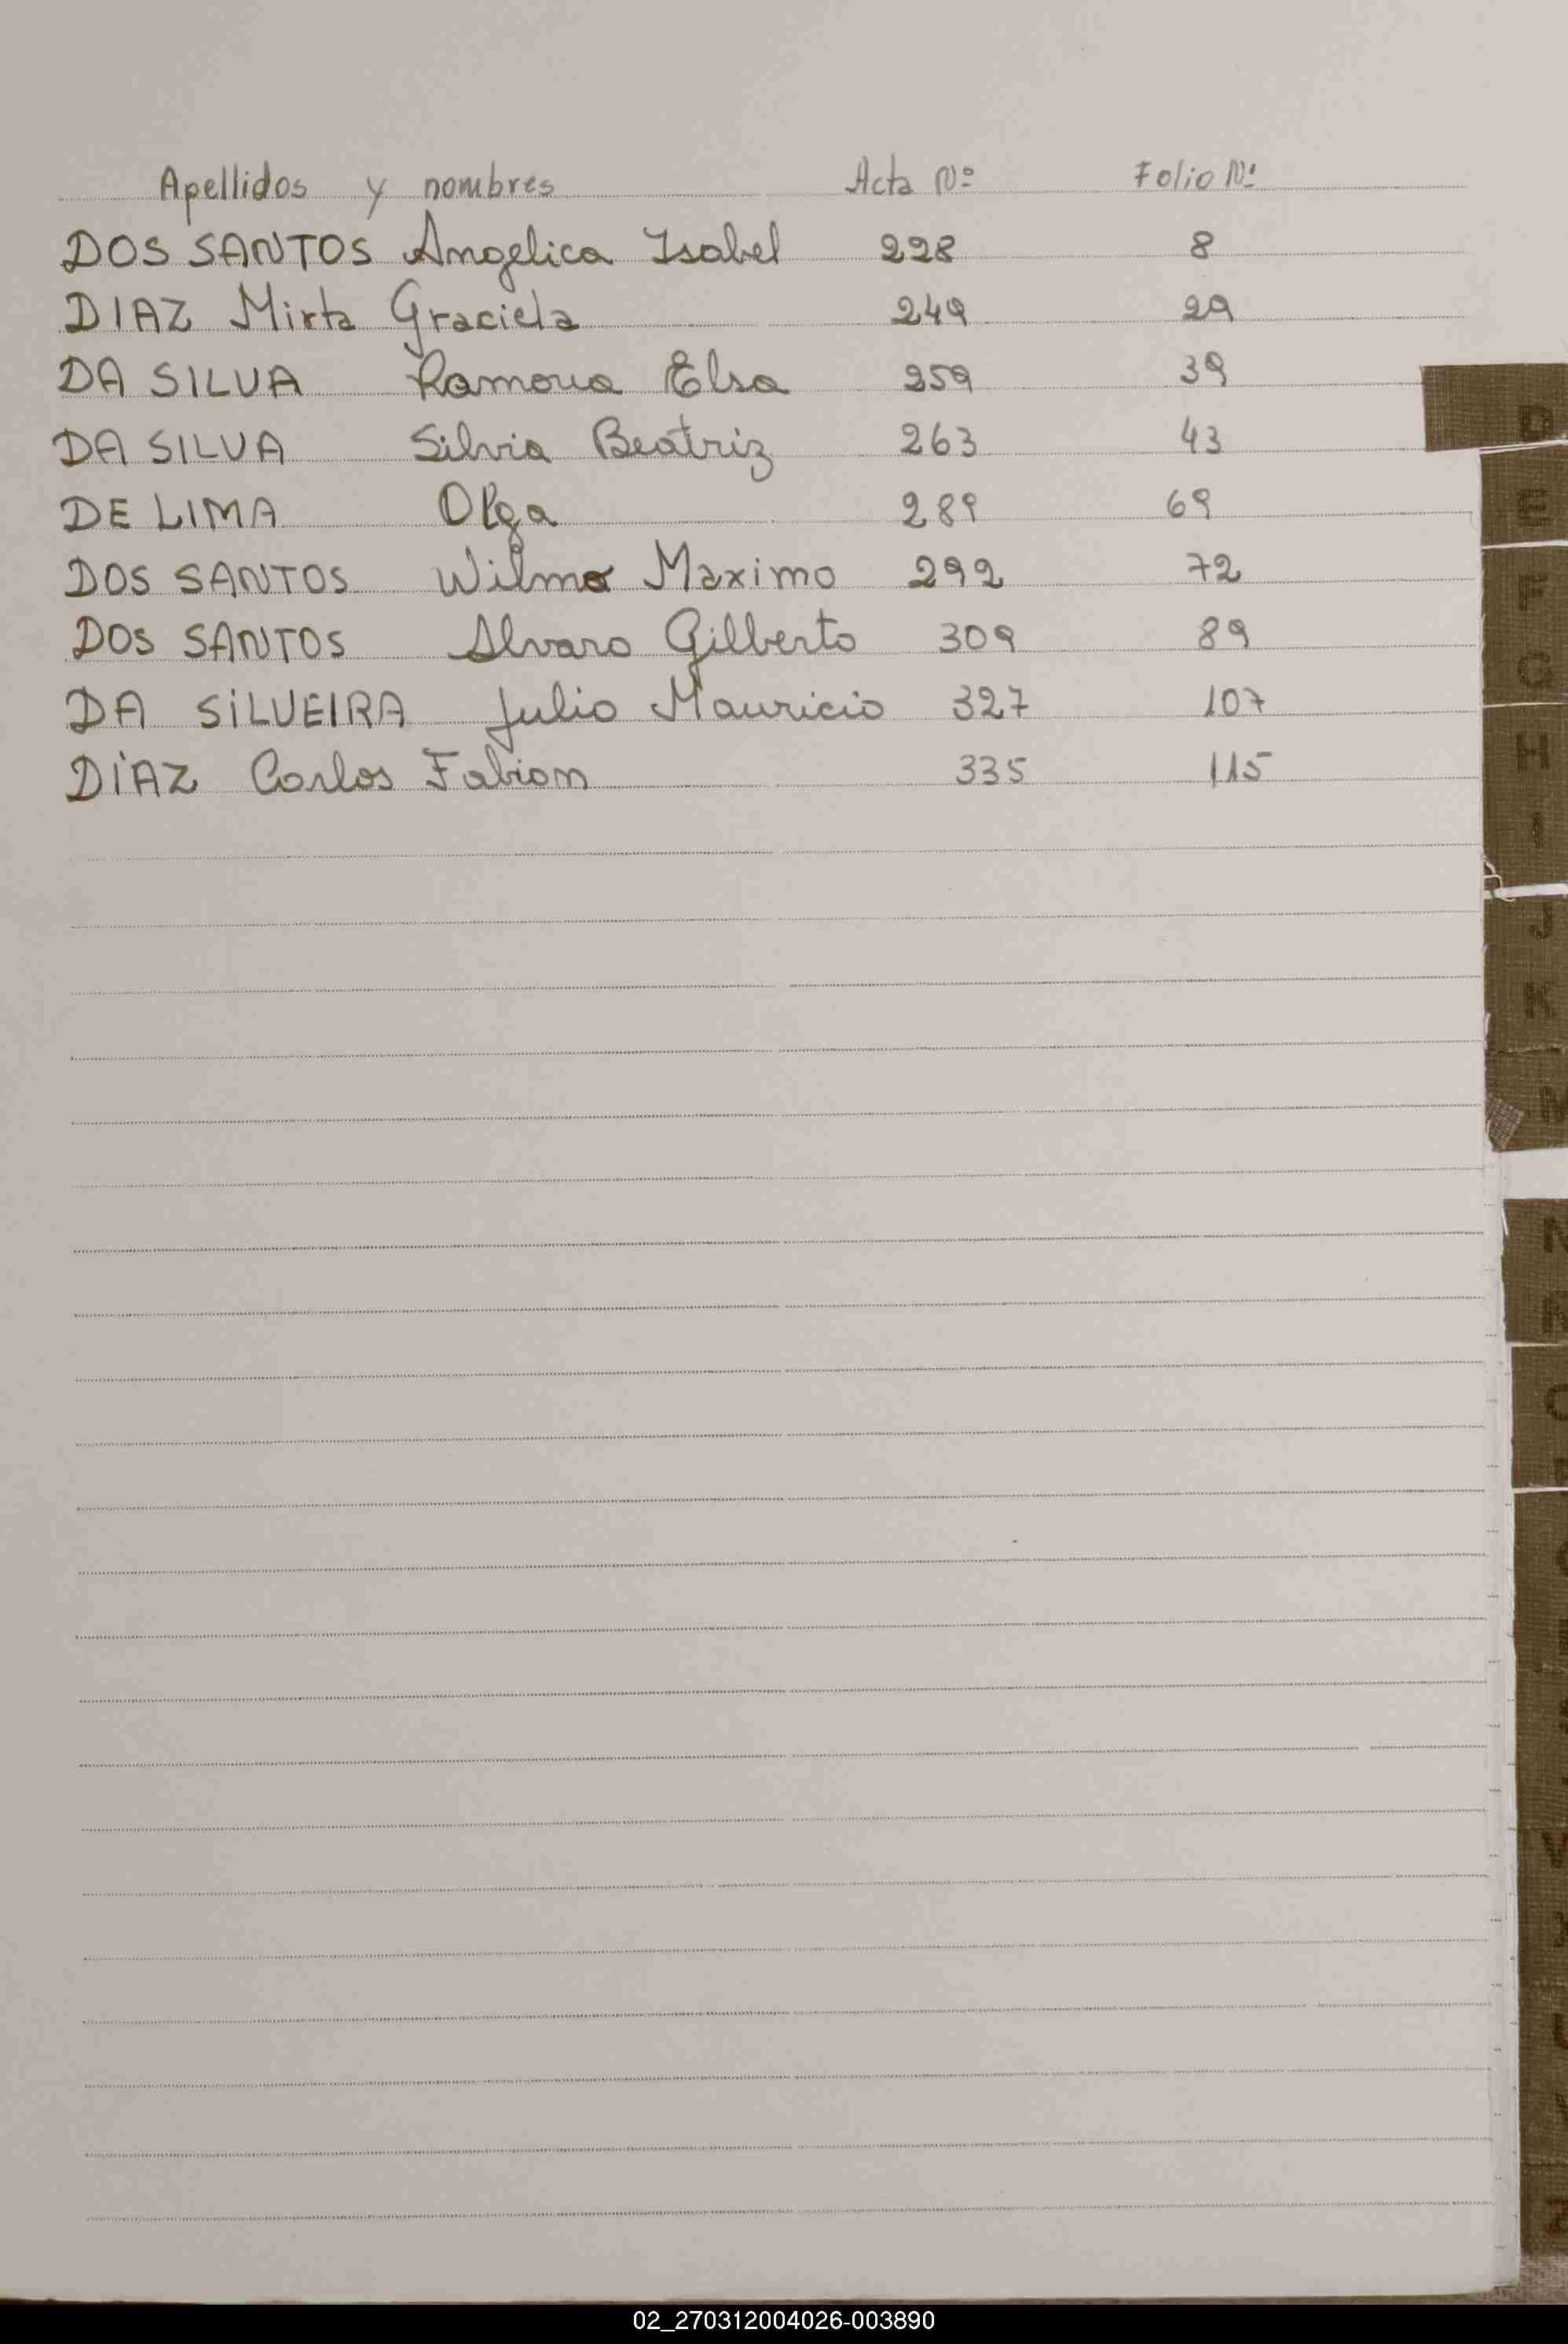 Apellidos y nombres Acta Nº Folio Nº
DOS SANTOS Angelica Isabel 228 8
DIAZ Mirta Graciela 249 29
DA SILVA Ramona Elsa 259 39
DA SILVA Silvia Beatriz 263 43
DE LIMA Olga 289 69
DOS SANTOS Wilmo Maximo 292 72
DOS SANTOS Alvaro Gilberto 309 89
DA SILVEIRA Julio Mauricio 327 107
DÍAZ Carlos Fabian 335 115
D
E
F
G
H
I
J
K
N
02_270312004026-003890